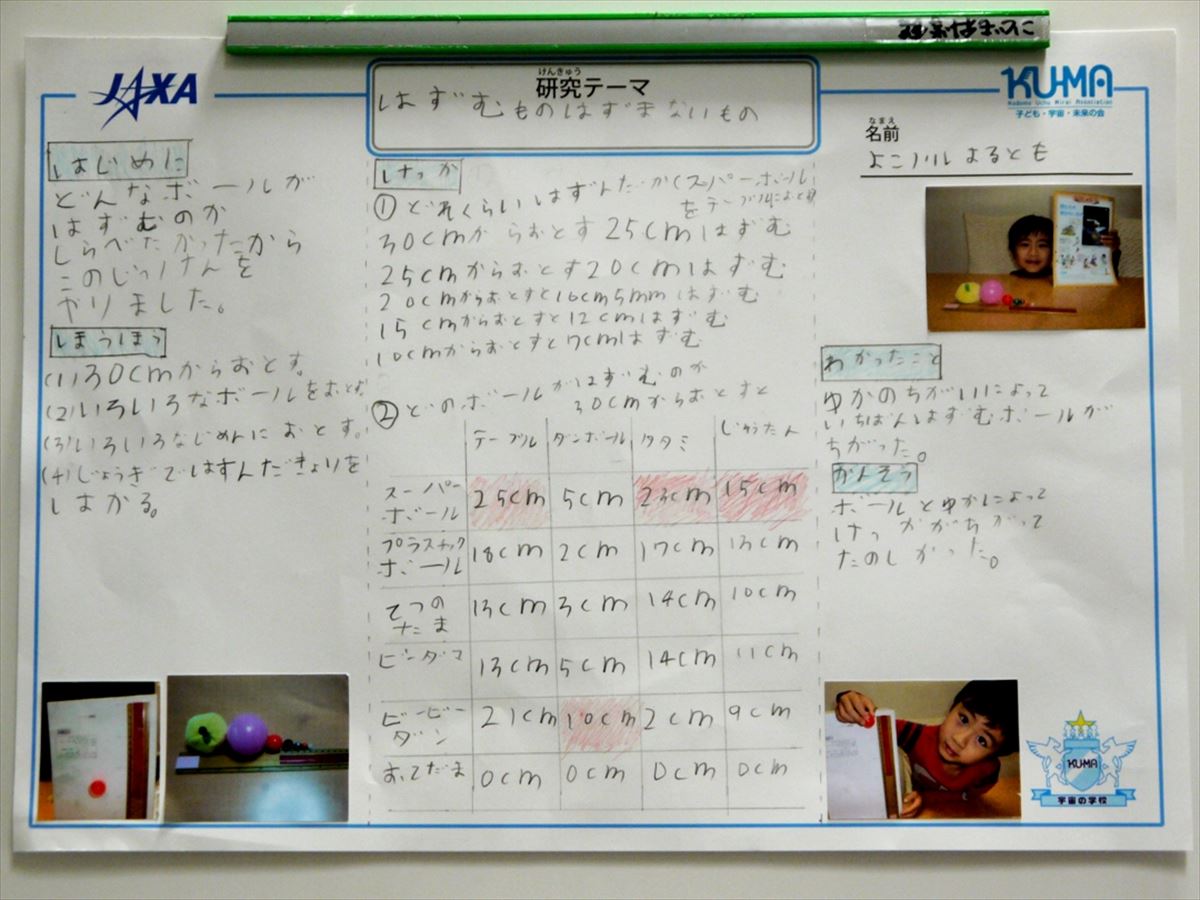 JAXA
けんきゅう
研究テーマ
はずむものはずまないもの
KU-MA
Kodomo Uchu Mirai Association
子ども・宇宙・未来の会
なまえ
名前
はじめに
どんなボールが
はずむのか
しらべたかったから
このじっけんを
やりました。
ほうほう
(1)30cmからおとす。
(2)いろいろなボールをおとす。
(3)いろいろなじめんにおとす。
(4)じょうぎではずんだきょりを
はかる。
けっか
①どれくらいはずんだか(スーパーボール
をテーブルにおとす
30cmからおとす25cmはずむ
25cmからおとす20cmはずむ
20cmからおとすと16cm5mmはずむ
15cmからおとすと12cmはずむ
10cmからおとすと7cmはずむ
②どのボールがはずむのか
30cmからおとすと
テーブル ダンボール タタミ じゅうたん
スーパーボール 25cm 5cm 23cm 15cm
プラスチックボール 18cm 2cm 17cm 13cm
てつのたま 13cm 3cm 14cm 10cm
ビーダマ 13cm 5cm 14cm 11cm
ビービーダン 21cm 10cm 2cm 9cm
おてだま 0cm 0cm 0cm 0cm
わかったこと
ゆかのちがいによって
いちばんはずむボールが
ちがった。
かんそう
ボールとゆかによって
けっかがちがって
たのしかった。
KU-MA
宇宙の学校